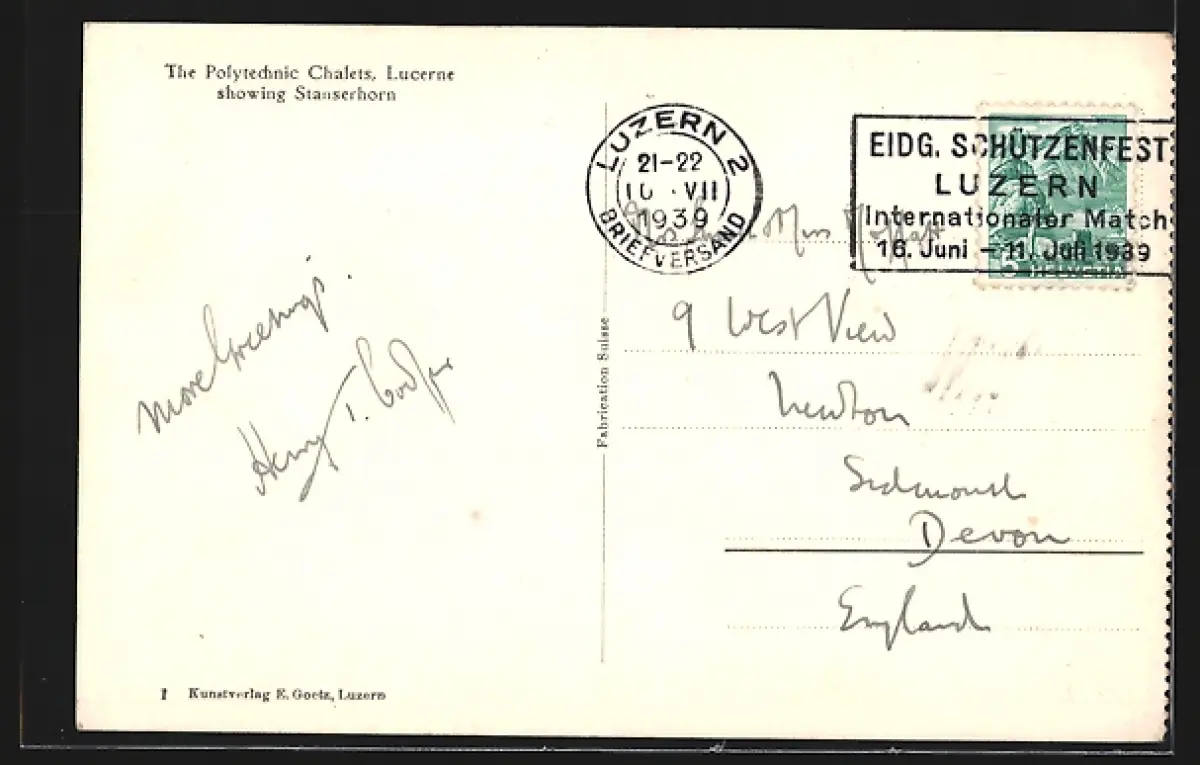 The Polytechnic Chalets, Lucerne
showing Stanserhorn
LUZERN 2
21-22
10 · VII
1939
BRIEFVERSAND
EIDG. SCHÜTZENFEST
LUZERN
Internationaler Match
16. Juni - 11. Juli 1939
5 HELVETIA
Miss Moffatt
9 West View
Newton
Sidmouth
Devon
England
More Greetings
Henry T.
Fabrication Suisse
1 Kunstverlag E. Goetz, Luzern